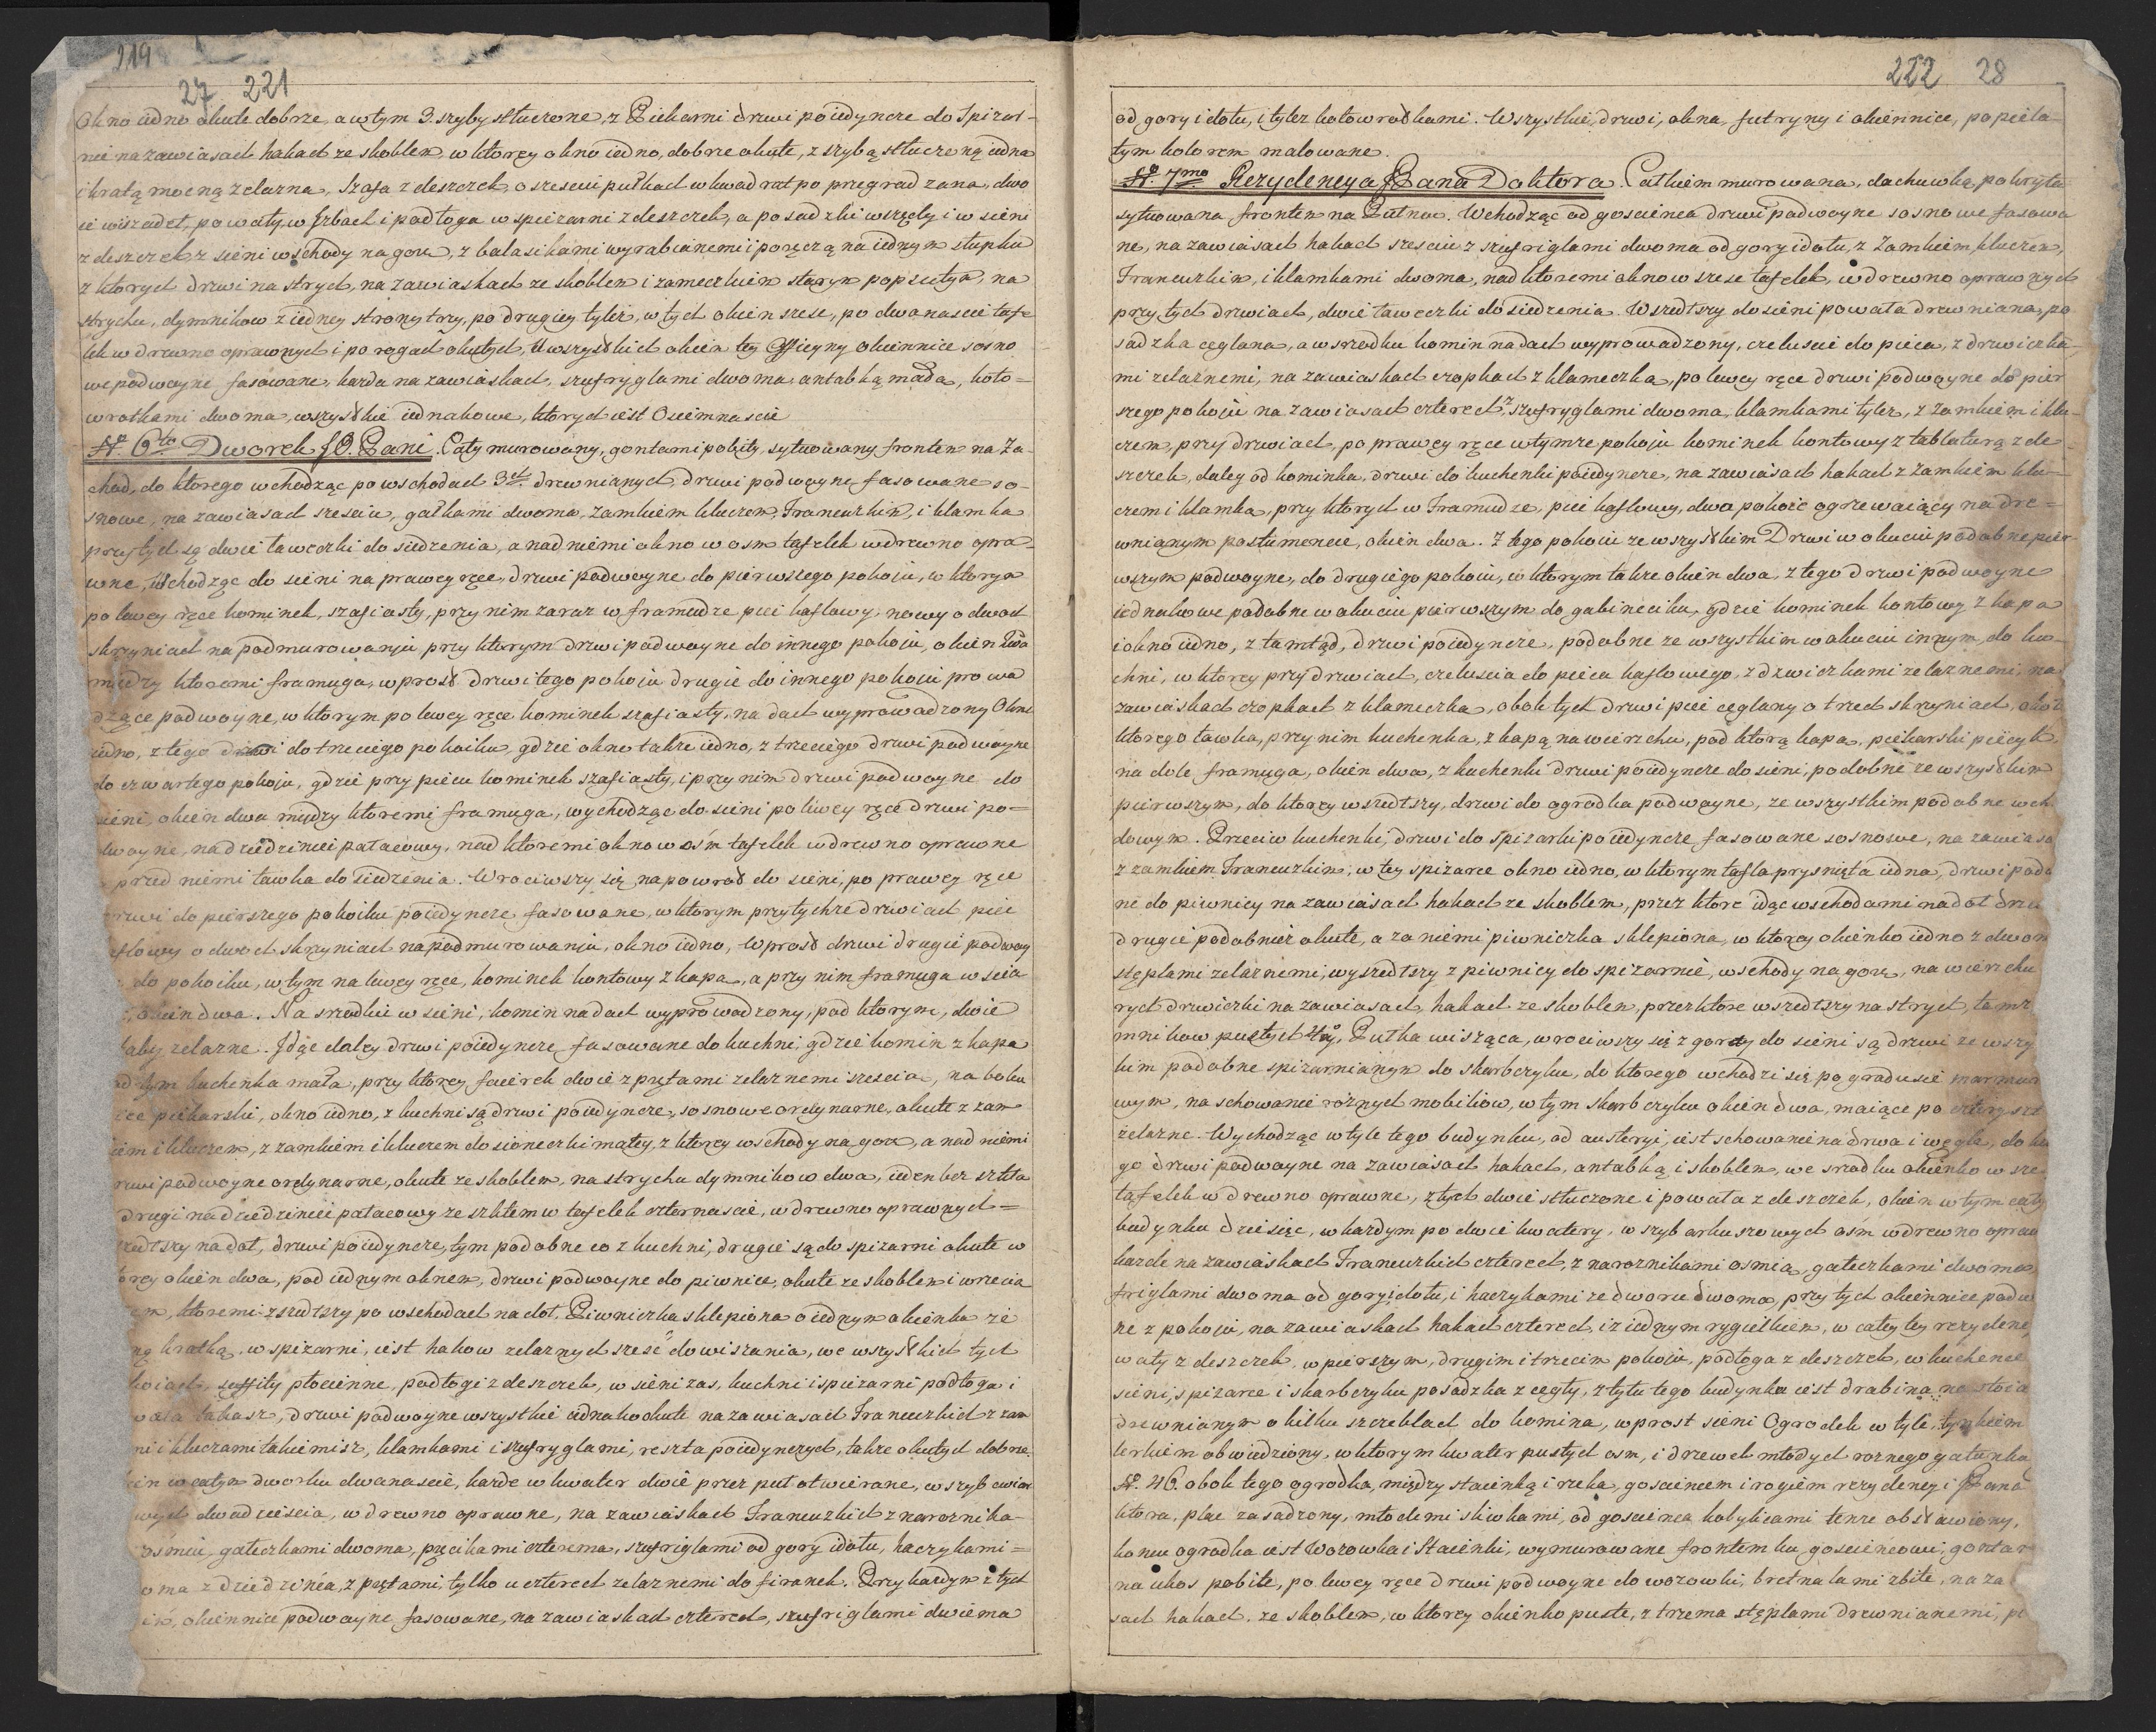 219
27 221
Okno iedno okute dobrze, a wtym 3. szyby stłuczone, z Piekarni drzwi poiedyncze do Spizar-
nie na zawiasach hakach ze skoblem, w ktorey okno iedno, dobrze okute, z szybą stłuczoną iedna
i kratą mocną zelazna, Szafa z deszczek, o szesciu pułkach w kwadrat po przegradzana, dwo
ie wiszadeł, powały w Jzbach i podłoga w spizarni z deszczek, a posadzki wszędy i w sieni
z deszczek z sieni wschody na gorę, z balasikami wyrabianemi i poręczą na iednym słupku
z ktorych drzwi na strych, na zawiaskach ze skoblem i zameczkiem starym popsutym, na
strychu, dymnikow z iedney strony trzy, po drugiey tyleż, w tych okien szesc, po dwanascie tafe
lek w drewno oprawnych i po rogach okutych, U wszystkich okien tey Officyny okiennice sosno
we podwoyne fasowane, kazda na zawiaskach, szufryglami dwoma, antabką małą, koło=
wrotkami dwoma, wszystkie iednakowe, ktorych iest Osiemnascie
N. 6to Dworek JO. Pani. Cały murowany, gontami pobity, sytuowany frontem na Za-
chod, do ktorego wchodząc po wschodach 3ch. drewnianych, drzwi podwoyne fasowane so-
snowe, na zawiasach szesciu, gałkami dwoma, zamkiem kluczem, Francuzkim, i klamka
przy tych są dwie ławeczki do siedzenia, a nad niemi okno w osm tafelek w drewno opra-
wne, Wchodząc do sieni na prawey ręce, drzwi podwoyne do pierwszego pokoiu, w ktorym
po lewey ręce kominek, szafiasty, przy nim zaraz w framudze piec kaflowy, nowy o dwoch
skrzyniach na podmurowaniu przy ktorym drzwi podwoyne do innego pokoiu, okien dwa
między ktoremi framuga, wprost drzwi tego pokoiu drugie do innego pokoiu prowa
dzące podwoyne, w ktorym po lewey ręce kominek szafiasty, na dach wyprowadzony Okno
iedno, z tego drzwi do trzeciego pokoiku, gdzie okno takze iedno, z trzeciego drzwi podwoyne
do czwartego pokoiu, gdzie przy piecu kominek szafiasty, i przy nim drzwi podwoyne do
sieni, okien dwa między ktoremi framuga, wychodząc do sieni po lewey ręce drzwi po=
dwoyne, na dziedziniec pałacowy, nad ktoremi okno w ośm tafelek w drewno oprawne
przed niemi ławka do siedzenia. Wrociwszy się napowrot do sieni, po prawey ręce
drzwi do pierszego pokoiku poiedyncze fasowane, w ktorym przy tychze drzwiach piec
kaflowy o dwoch skrzyniach na podmurowaniu, okno iedno, wprost drzwi drugie podwoy
do pokoiku, w tym na lewey ręce, kominek kontowy z kapa, a przy nim framuga w scia
okien dwa. Na srodku w sieni, komin na dach wyprowadzony, pod ktorym, dwie
baby zelazne. Jdąc daley drzwi poiedyncze fasowane do kuchni, gdzie komin z kapa
pod tym kuchenka mała, przy ktorey faierek dwie z prętami zelaznemi szescia, na boku
piec piekarski, okno iedno, z kuchni są drzwi poiedyncze, sosnowe ordynarne, okute z zam
kiem i kluczem, z zamkiem i kluczem do sioneczki małey, z ktorey wschody na gorę, a nad niemi
drzwi podwoyne ordynarne, okute ze skoblem, na strychu dymnikow dwa, ieden bez szkła
drugi na dziedziniec pałacowy ze szkłem w tafelek czternascie, w drewno oprawnych=
zszedłszy na doł, drzwi poiedyncze, tym podobne co z kuchni, drugie są do spizarni okute w
ktorey okien dwa, pod iednym oknem, drzwi podwoyne do piwnice, okute ze skoblem i wrzecia
em, ktoremi zszedłszy po wschodach na doł. Piwniczka sklepiona o iednym okienku ze
ną kratką, w spizarni, iest hakow zelaznych szesć do wiszania, we wszystkich tych
pokoiach, suffity płocienne, podłogi z deszczek, w sieni zas, kuchni i spizarni podłoga i
powała takasz, drzwi podwoyne wszystkie iednako okute na zawiasach Francuzkich z zam
mi i kluczami takiemisz, klamkami i szufryglami, reszta poiedynczych, takze okutych dobrze
okien w całym dworku dwanascie, kazde w kwater dwie przez puł otwierane, w szyb cwiar
wych dwadziescia, w drewno oprawne, na zawiaskach Francuzkich z naroznika-
ośmiu, gałeczkami dwoma, pręcikami czterema, szufriglami od gory i dołu, haczykami=
dwoma z dziedzińca, z prętami, tylko u czterech zelaznemi do firanek. Przy kazdym z tych
okien, okiennice podwoyne fasowane, na zawiaskach czterech, szufriglami dwiema
222 28
od gory i dołu, i tylez kołowrotkami. Wszystkie, drzwi, okna, futryny i okiennice, popiela-
tym kolorem malowane.
N. 7mo Rezydencya JPana Doktora. Całkiem murowana, dachuwką pokryta
sytuowana frontem na Kutno. Wchodząc od goscinca drzwi podwoyne sosnowe fasowa
ne, na zawiasach hakach szesciu z szufriglami dwoma od gory i dołu, z Zamkiem, kluczem,
Francuzkim, i klamkami dwoma, nad ktoremi okno w szesc tafelek, w drewno oprawnych
przy tych drzwiach, dwie ławeczki do siedzenia. Wszedłszy do sieni powała drewniana, po
sadzka ceglana, a w srodku komin na dach wyprowadzony, czeluscie do pieca, z drzwiczka-
mi zelaznemi, na zawiaskach czopkach z klameczka, po lewey ręce drzwi podwoyne do pier
szego pokoiu na zawiasach czterech, z szufryglami dwoma, klamkami tylez, z zamkiem i klu-
czem, przy drzwiach, po prawey ręce w tymze pokoiu kominek kontowy z tablaturą z de
szczek, daley od kominka, drzwi do kuchenki poiedyncze, na zawiasach hakach z zamkiem klu-
czem i klamka, przy ktorych w Framudze, piec kaflowy, dwa pokoie ogrzewaiący na dre=
wnianym postumencie, okien dwa. Z tego pokoiu ze wszystkim Drzwi w okuciu podobne pier-
wszym podwoyne, do drugiego pokoiu, w ktorym takze okien dwa, z tego drzwi podwoyne
iednakowe podobne w okuciu pierwszym do gabineciku, gdzie kominek kontowy z kapa
i okno iedno, z tamtąd, drzwi poiedyncze, podobne ze wszystkim w okuciu innym, do ku-
chni, w ktorey przy drzwiach, czeluscia do pieca kaflowego, z dzwiczkami zelaznemi, na
zawiaskach czopkach z klameczka, obok tych drzwi piec ceglany o trzech skrzyniach, obok
ktorego ławka, przy nim kuchenka, z kapą na wierzchu, pod ktorą kapa, piekarski piecyk,
na dole framuga, okien dwa, z kuchenki drzwi poiedyncze do sieni, podobne ze wszystkim
pierwszym, do ktorey wszedłszy, drzwi do ogrodka podwoyne, ze wszystkim podobne wch
dowym. Przeciw kuchenki, drzwi do spizarki poiedyncze fasowane sosnowe, na zawiasa
z zamkiem Francuzkim, w tey spizarce okno iedno, w ktorym tafla prysnięta iedna, drzwi podo
ne do piwnicy na zawiasach hakach ze skoblem, przez ktore idąc wschodami na doł drzw
drugie podobnież okute, a za niemi piwniczka sklepiona, w ktorey okienko iedno z dwom
stęplami zelaznemi, wyszedłszy z piwnicy do spizarnie, wschody na gorę, na wierzchu
rych drzwiczki na zawiasach, hakach ze skoblem, przez ktore wszedłszy na strych, tamz
mnikow pustych 4ry, Kutka wisząca, wrociwszy się z gory do sieni są drzwi ze wszy
kim podobne spizarnianym do skarbczyku, do ktorego wchodzi się po gradusie marmur
wym, na schowanie roznych mobiliow, w tym skarbczyku okien dwa, maiące po cztery szt
żelazne. Wychodząc w tyle tego budynku, od austeryi, iest schowanie na drwa i węgle, do kto
go drzwi podwoyne na zawiasach hakach, antabką i skoblem, we srodku okienko w sze
tafelek w drewno oprawne, z tych dwie stłuczone i powała z deszczek, okien w tym cały
budynku dziesięc, w kazdym po dwie kwatery, w szyb arkuszowych ośm w drewno opraw
kazde na zawiaskach Francuzkich czterech, z naroznikami osmią, gałeczkami dwoma
friglami dwoma od gory i dołu, i haczykami ze dworu dwoma, przy tych okiennice podw
ne z pokoiu, na zawiaskach hakach czterech, i z iednym rygielkiem, w całey tey rezydenc
wały z deszczek, w pierszym, drugim i trzecim pokoiu, podłoga z deszczek, w kuchence
sieni, spizarce i skarbczyku posadzka z cegły, z tyłu tego budynku iest drabina na stoia
drewnianym o kilku szczeblach do komina, wprost sieni Ogrodek w tyle, tynkiem
lerkiem obwiedziony, w ktorym kwater pustych osm, i drzewek młodych roznego gatunku
N. 46. obok tego ogrodka, między staienką i rzeka, goscincem i rogiem rezydencyi JPana
ktora, plac zasadzony, młodemi sliwkami, od goscinca kobylicami tenze obstawiony,
koncu ogrodka iest Wozowka i Staienki, wymurowane frontem ku goscincowi, gontam
na ukos pobite, po lewey ręce drzwi podwoyne do wozowki, bretnalami zbite, na za
sach hakach, ze skoblem, w ktorey okienko puste, z trzema stęplami drewnianemi, po